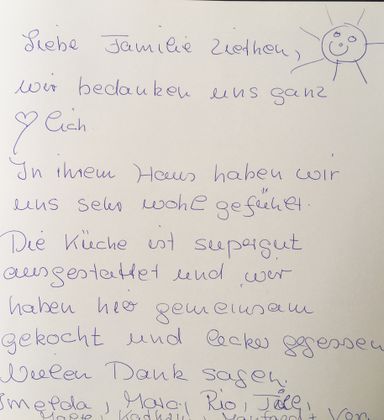 Liebe Familie Ziethen,
wir bedanken uns ganz
♡lich
In ihrem Haus haben wir
uns sehr wohl gefühlt.
Die Küche ist supergut
ausgestattet und wir
haben hier gemeinsam
gekocht und lecker gegessen
Vielen Dank sagen
Imelda, Mara, Rio,